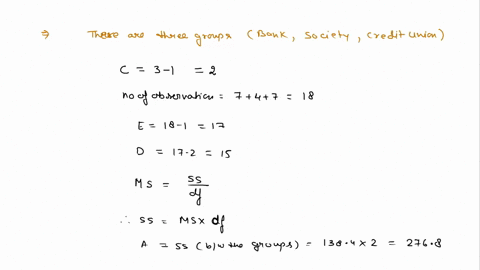 ⇒ There are three groups (Bank, Society, Credit Union)
C = 3-1 = 2
no of observation = 7+4+7 = 18
E = 18-1 = 17
D = 17-2 = 15
MS = SS/df
∴ SS = MS× df
A = SS (b/w the groups) = 138.4 × 2 = 276.8